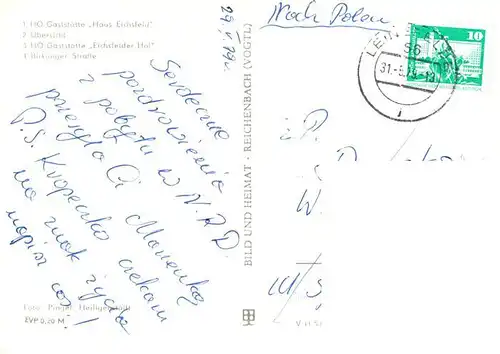 1 HO Gaststätte „Haus Eichsfeld"
2 Übersicht
3 HO Gaststätte „Eichsfelder Hof"
4 Birkunger Straße
29.V.79r.
Serdeczne
pozdrowienia
z pobytu w N.R.D.
przesyła Ci Marenka
P.S. Kropecko czekam
na znak życia
napisz coś!
Foto: Pinger, Heiligenstadt
EVP 0,20 M
BILD UND HEIMAT · REICHENBACH (VOGTL)
Nach Polen
10
31.-5.79-18
P.
W.
V 11 S